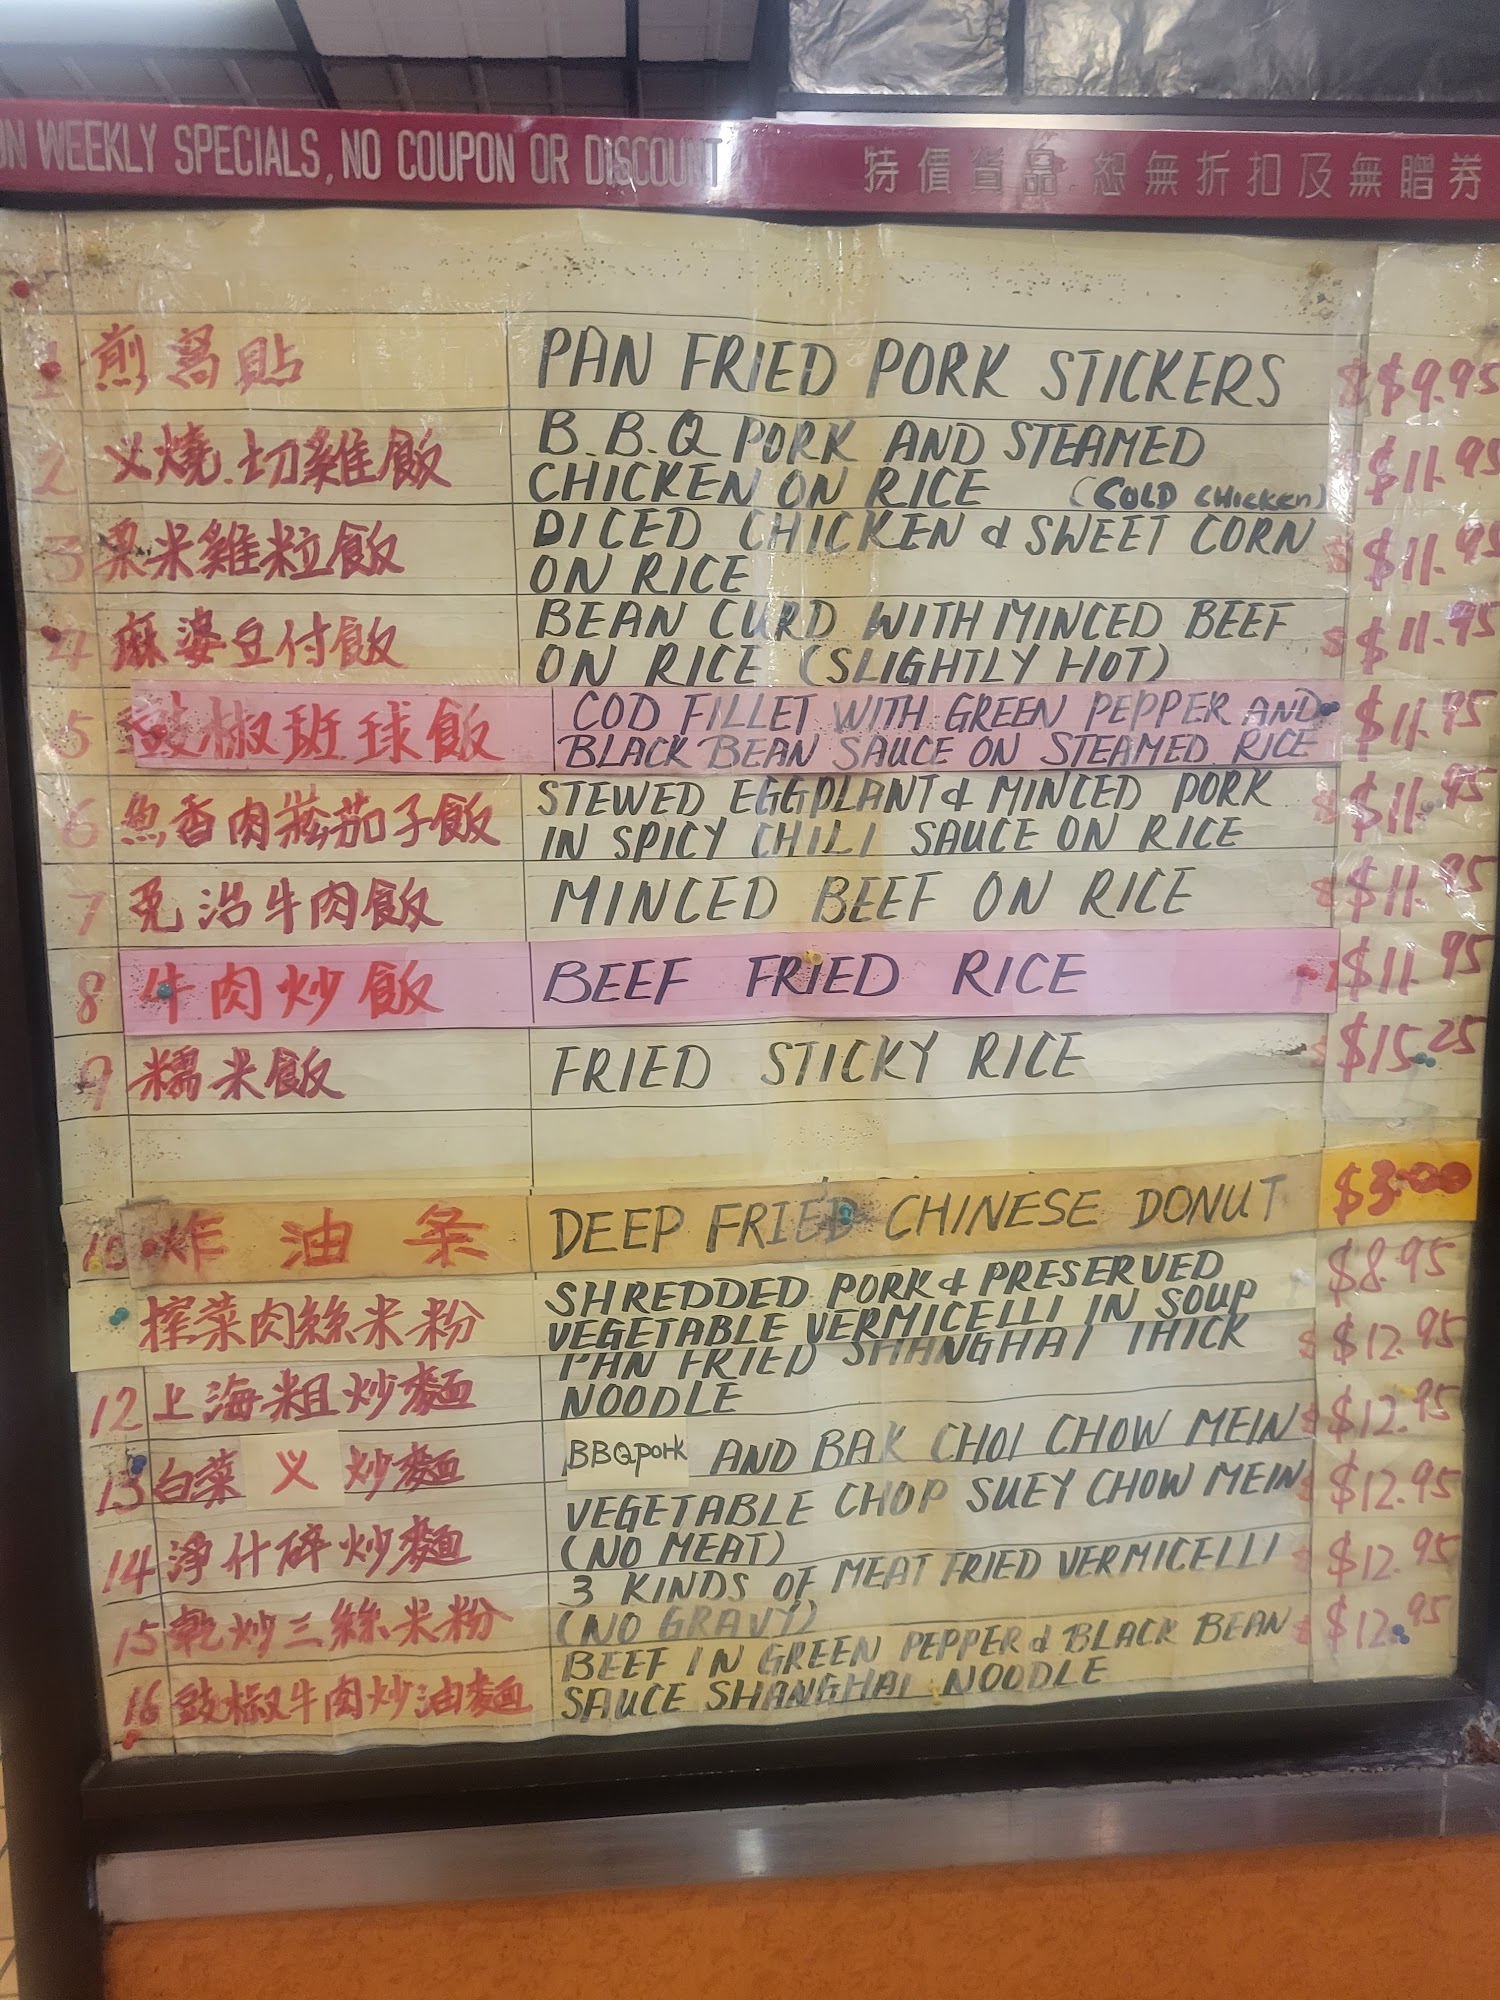 ON WEEKLY SPECIALS, NO COUPON OR DISCOUNT 特價貨品 恕無折扣及無贈券
1 煎窩貼 PAN FRIED PORK STICKERS $9.95
2 义燒.切雞飯 B.B.Q PORK AND STEAMED
CHICKEN ON RICE (COLD CHICKEN) $11.95
3 粟米雞粒飯 DICED CHICKEN & SWEET CORN
ON RICE $11.95
4 麻婆豆付飯 BEAN CURD WITH MINCED BEEF
ON RICE (SLIGHTLY HOT) $11.95
5 豉椒班球飯 COD FILLET WITH GREEN PEPPER AND
BLACK BEAN SAUCE ON STEAMED RICE $11.95
6 魚香肉崧茄子飯 STEWED EGGPLANT & MINCED PORK
IN SPICY CHILI SAUCE ON RICE $11.95
7 免治牛肉飯 MINCED BEEF ON RICE $11.95
8 牛肉炒飯 BEEF FRIED RICE $11.95
9 糯米飯 FRIED STICKY RICE $15.25
10 炸油条 DEEP FRIED CHINESE DONUT $3.00
榨菜肉絲米粉 SHREDDED PORK & PRESERVED
VEGETABLE VERMICELLI IN SOUP $8.95
12 上海粗炒麵 PAN FRIED SHANGHAI THICK
NOODLE $12.95
13 白菜 义 炒麵 BBQ pork AND BAK CHOI CHOW MEIN $12.95
14 淨什碎炒麵 VEGETABLE CHOP SUEY CHOW MEIN
(NO MEAT) $12.95
15 乾炒三絲米粉 3 KINDS OF MEAT FRIED VERMICELLI
(NO GRAVY) $12.95
16 豉椒牛肉炒油麵 BEEF IN GREEN PEPPER & BLACK BEAN
SAUCE SHANGHAI NOODLE $12.95